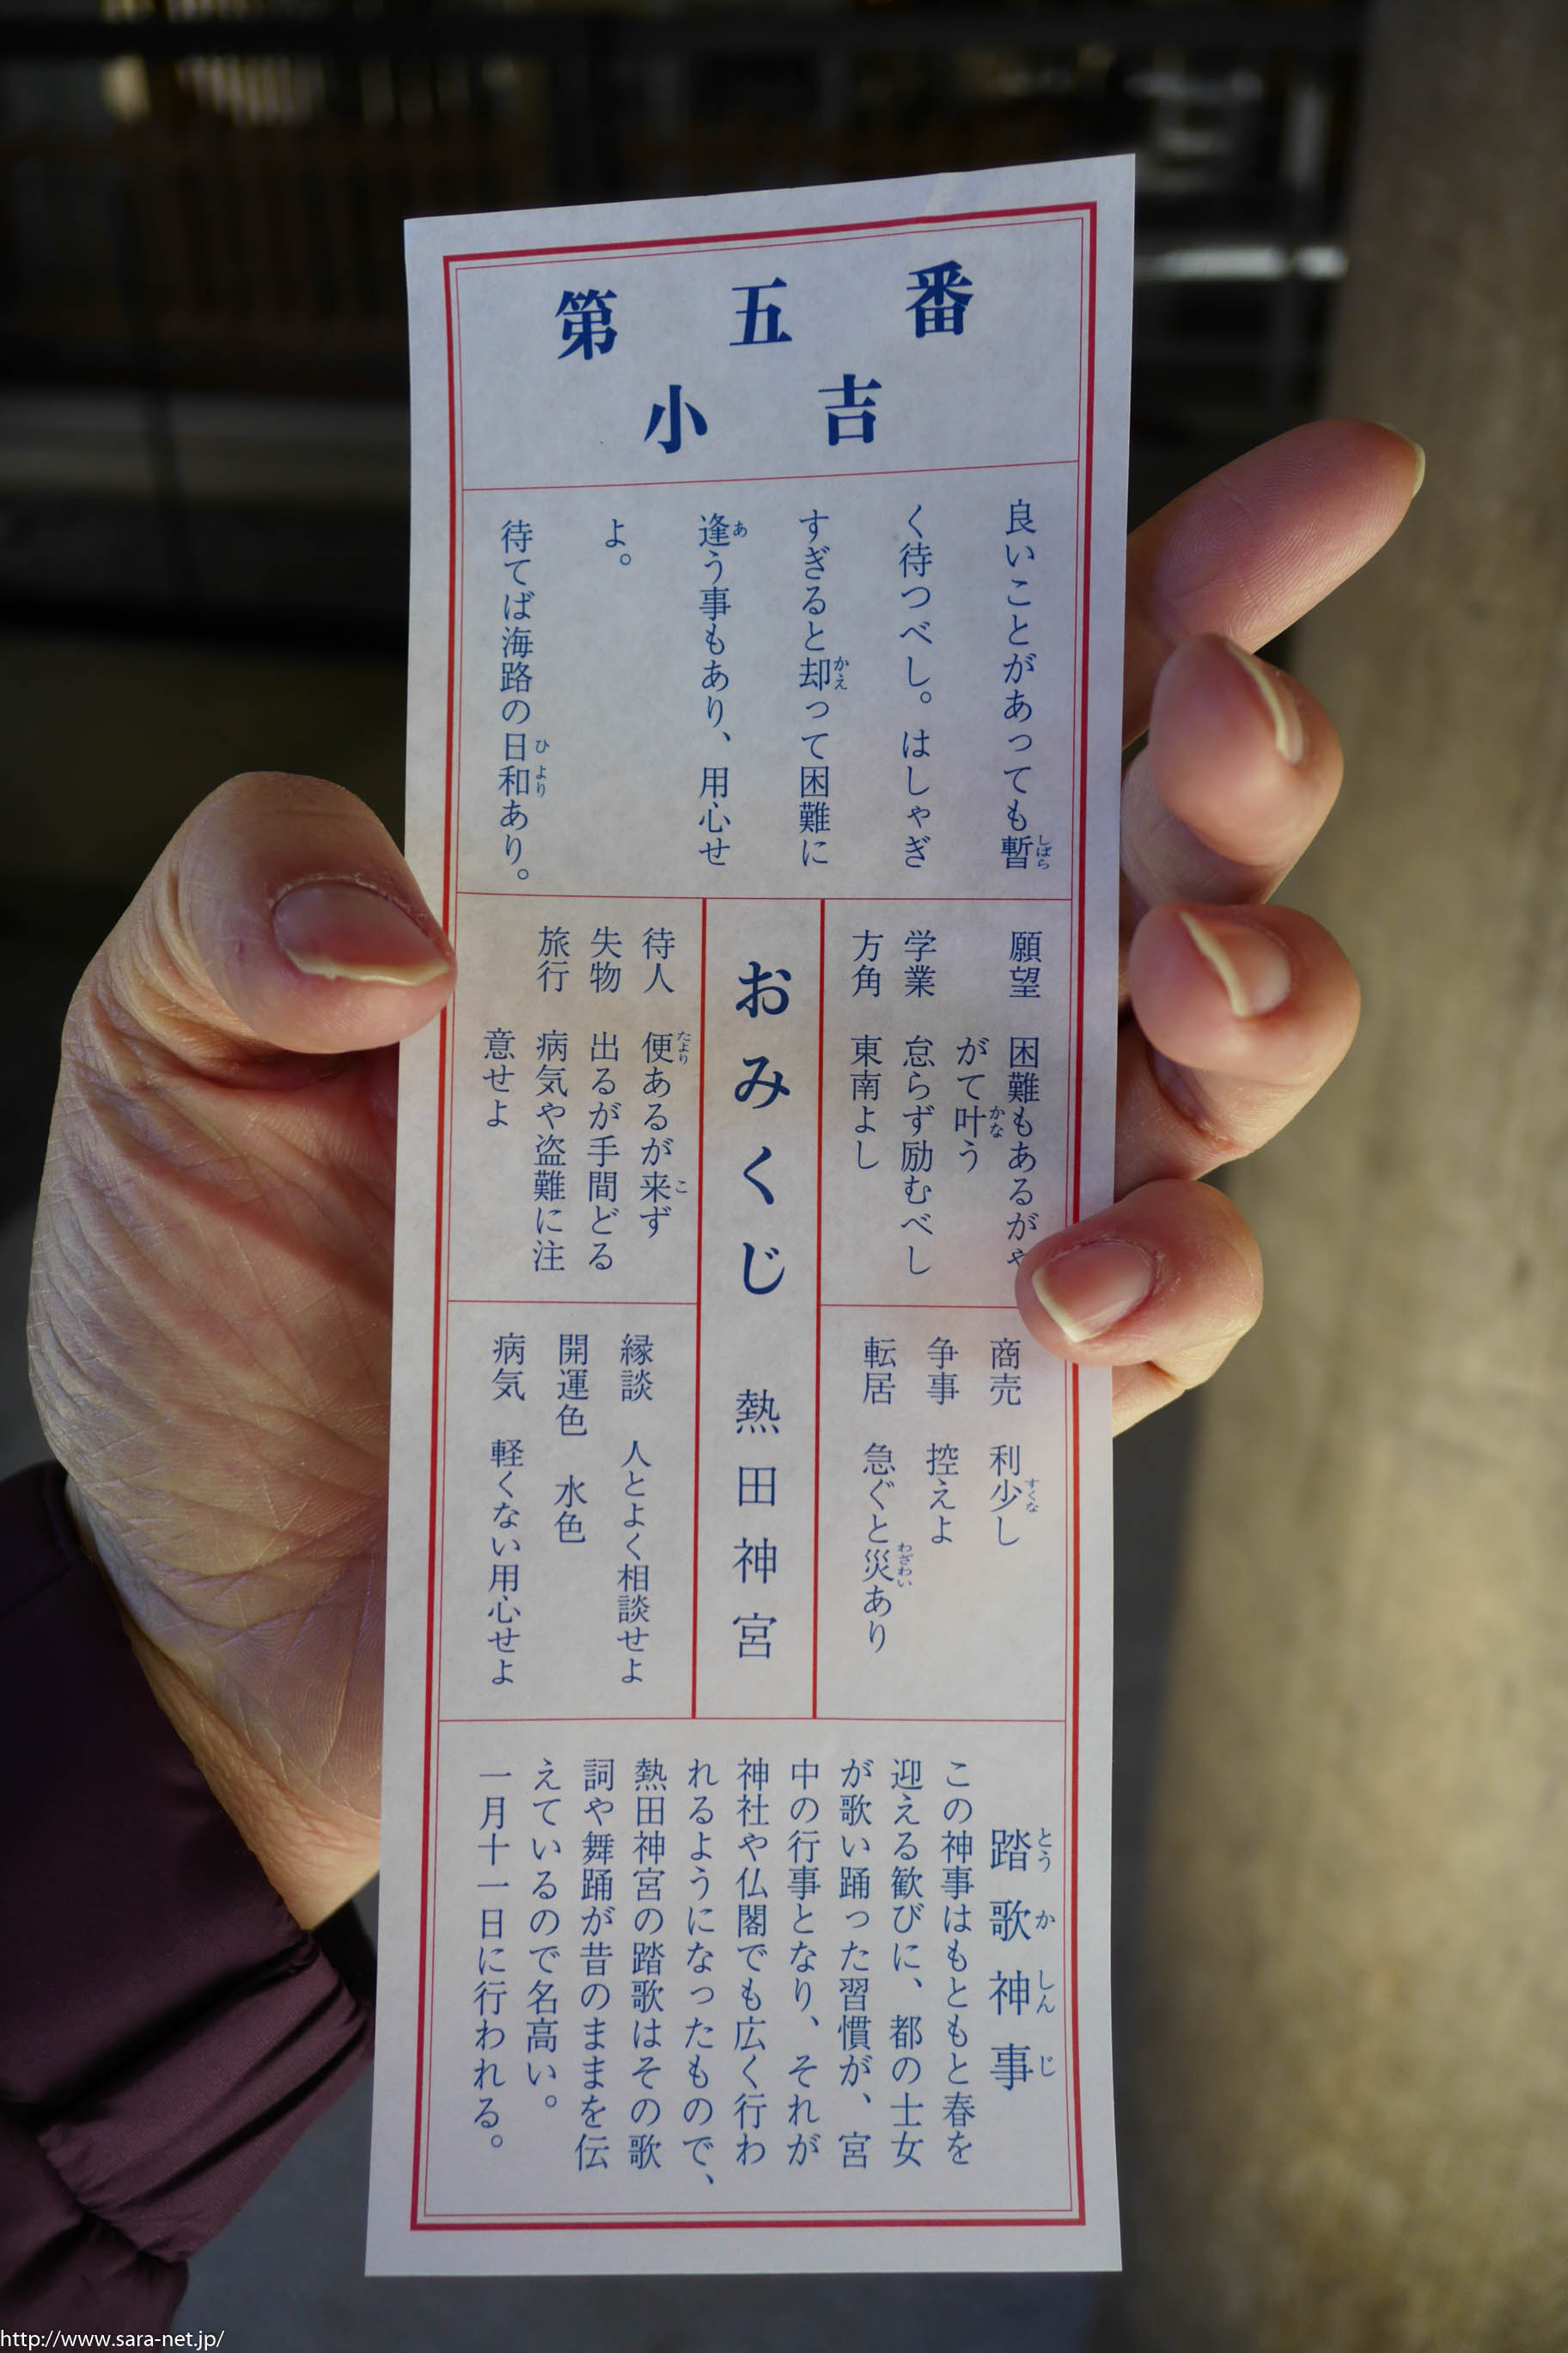 第五番
小吉
良いことがあっても暫
しばら
く待つべし。はしゃぎ
すぎると却って困難に
かえ
逢う事もあり、用心せ
あ
よ。
待てば海路の日和あり。
ひより
願望 困難もあるがや
がて叶う
かな
学業 怠らず励むべし
方角 東南よし
商売 利少し
すくな
争事 控えよ
転居 急ぐと災あり
わざわい
おみくじ 熱田神宮
待人 便あるが来ず
たより こ
失物 出るが手間どる
旅行 病気や盗難に注
意せよ
縁談 人とよく相談せよ
開運色 水色
病気 軽くない用心せよ
踏歌神事
とうかしんじ
この神事はもともと春を
迎える歓びに、都の士女
が歌い踊った習慣が、宮
中の行事となり、それが
神社や仏閣でも広く行わ
れるようになったもので、
熱田神宮の踏歌はその歌
詞や舞踊が昔のままを伝
えているので名高い。
一月十一日に行われる。
http://www.sara-net.jp/